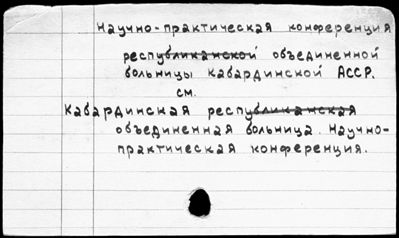 Научно-практическая конференция
республиканской объединенной
больницы кабардинской АССР.
см.
Кабардинская республиканская
объединенная больница. Научно-
практическая конференция.